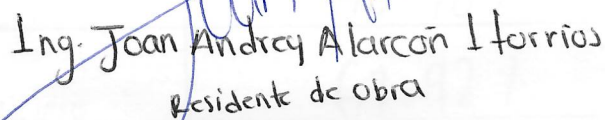 Ing. Joan Andrey Alarcón Iturrios
Residente de obra